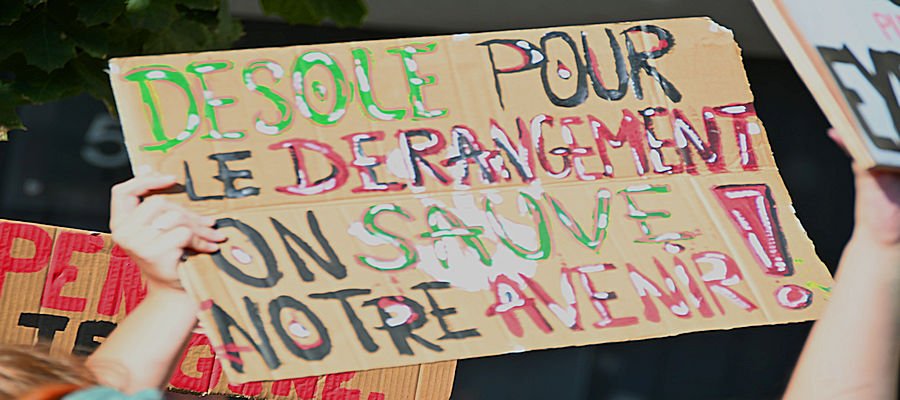 DESOLE POUR
LE DERANGEMENT
ON SAUVE
NOTRE AVENIR !